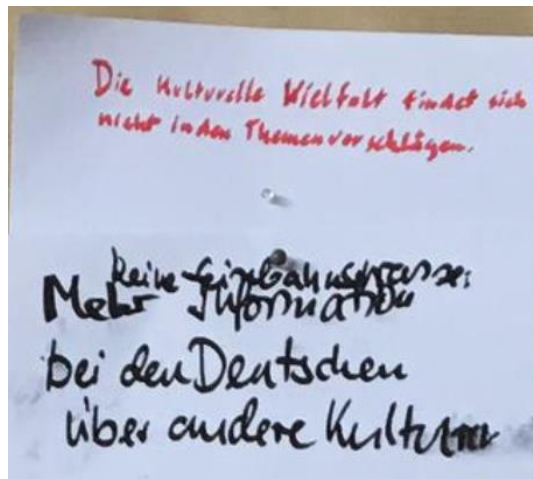 Die kulturelle Vielfalt findet sich
nicht in den Themenvorschlägen.
keine Einbahnstrasse:
Mehr Information
bei den Deutschen
über andere Kulturen